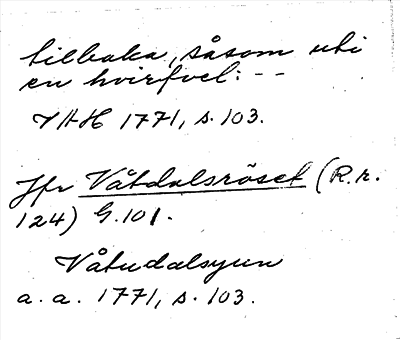 tillbaka, såsom uti
en hvirfvel: --
VAH 1771, s. 103.
Jfr Våtdalsröset (R.r.
124) G. 101.
Våtudalsyun
a. a. 1771, s. 103.